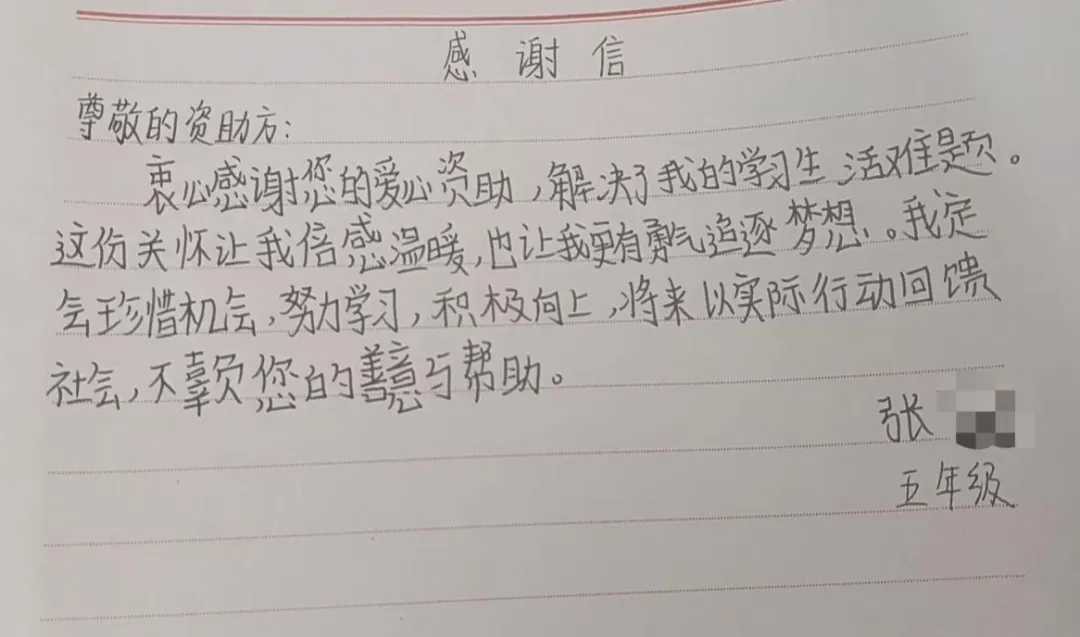 感谢信
尊敬的资助方:
衷心感谢您的爱心资助,解决了我的学习生活难题。
这份关怀让我倍感温暖,也让我更有勇气追逐梦想。我定
会珍惜机会,努力学习,积极向上,将来以实际行动回馈
社会,不辜负您的善意与帮助。
张
五年级